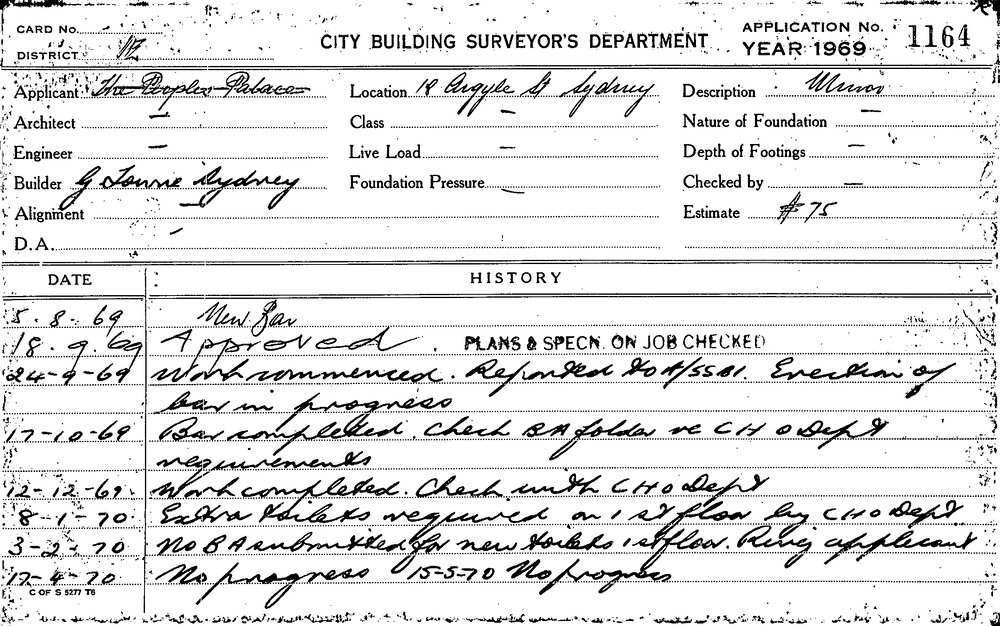 CARD No.
DISTRICT 112
CITY BUILDING SURVEYOR'S DEPARTMENT
APPLICATION No. 1164
YEAR 1969
Applicant The Peoples Palace
Location 18 Argyle St Sydney
Description Minor
Architect —
Class —
Nature of Foundation —
Engineer —
Live Load —
Depth of Footings —
Builder G Sydney
Foundation Pressure —
Checked by —
Alignment —
Estimate $75
D.A. -
DATE HISTORY
5.8.69 New Bar
18.9.69 Approved. PLANS & SPECN. ON JOB CHECKED
24-9-69 Work commenced. Reported to Erection of
bar in progress
17-10-69 Bar completed. Check BA folder re CHO Dept
requirements
12-12-69. Work completed. Check with CHO Dept
8-1-70 Extra toilets required on 1st floor by CHO Dept
3-2-70 No BA submitted for new toilets 1st floor. Ring applicant
17-4-70 No progress 15-5-70 No progress
C OF S 5277 T6